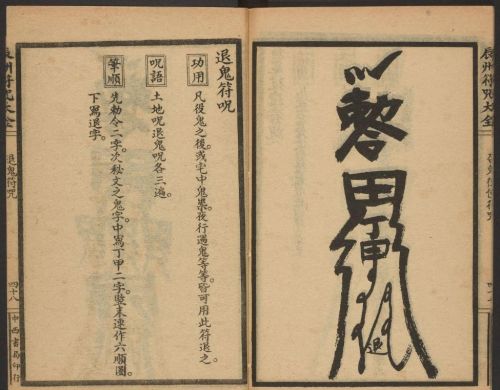 辰州符呪大全
退
退鬼符呪
功用 凡役鬼之後。或宅中鬼祟。夜行遇鬼等等。皆可用此符退之。
呪語 土地呪退鬼呪各三遍。
筆順 先勅令二字。次秘文之鬼字。中寫丁甲二字。豎末連作六順圈。
下寫退字。
州符呪大全
退鬼符呪
四十八
中西書局印行